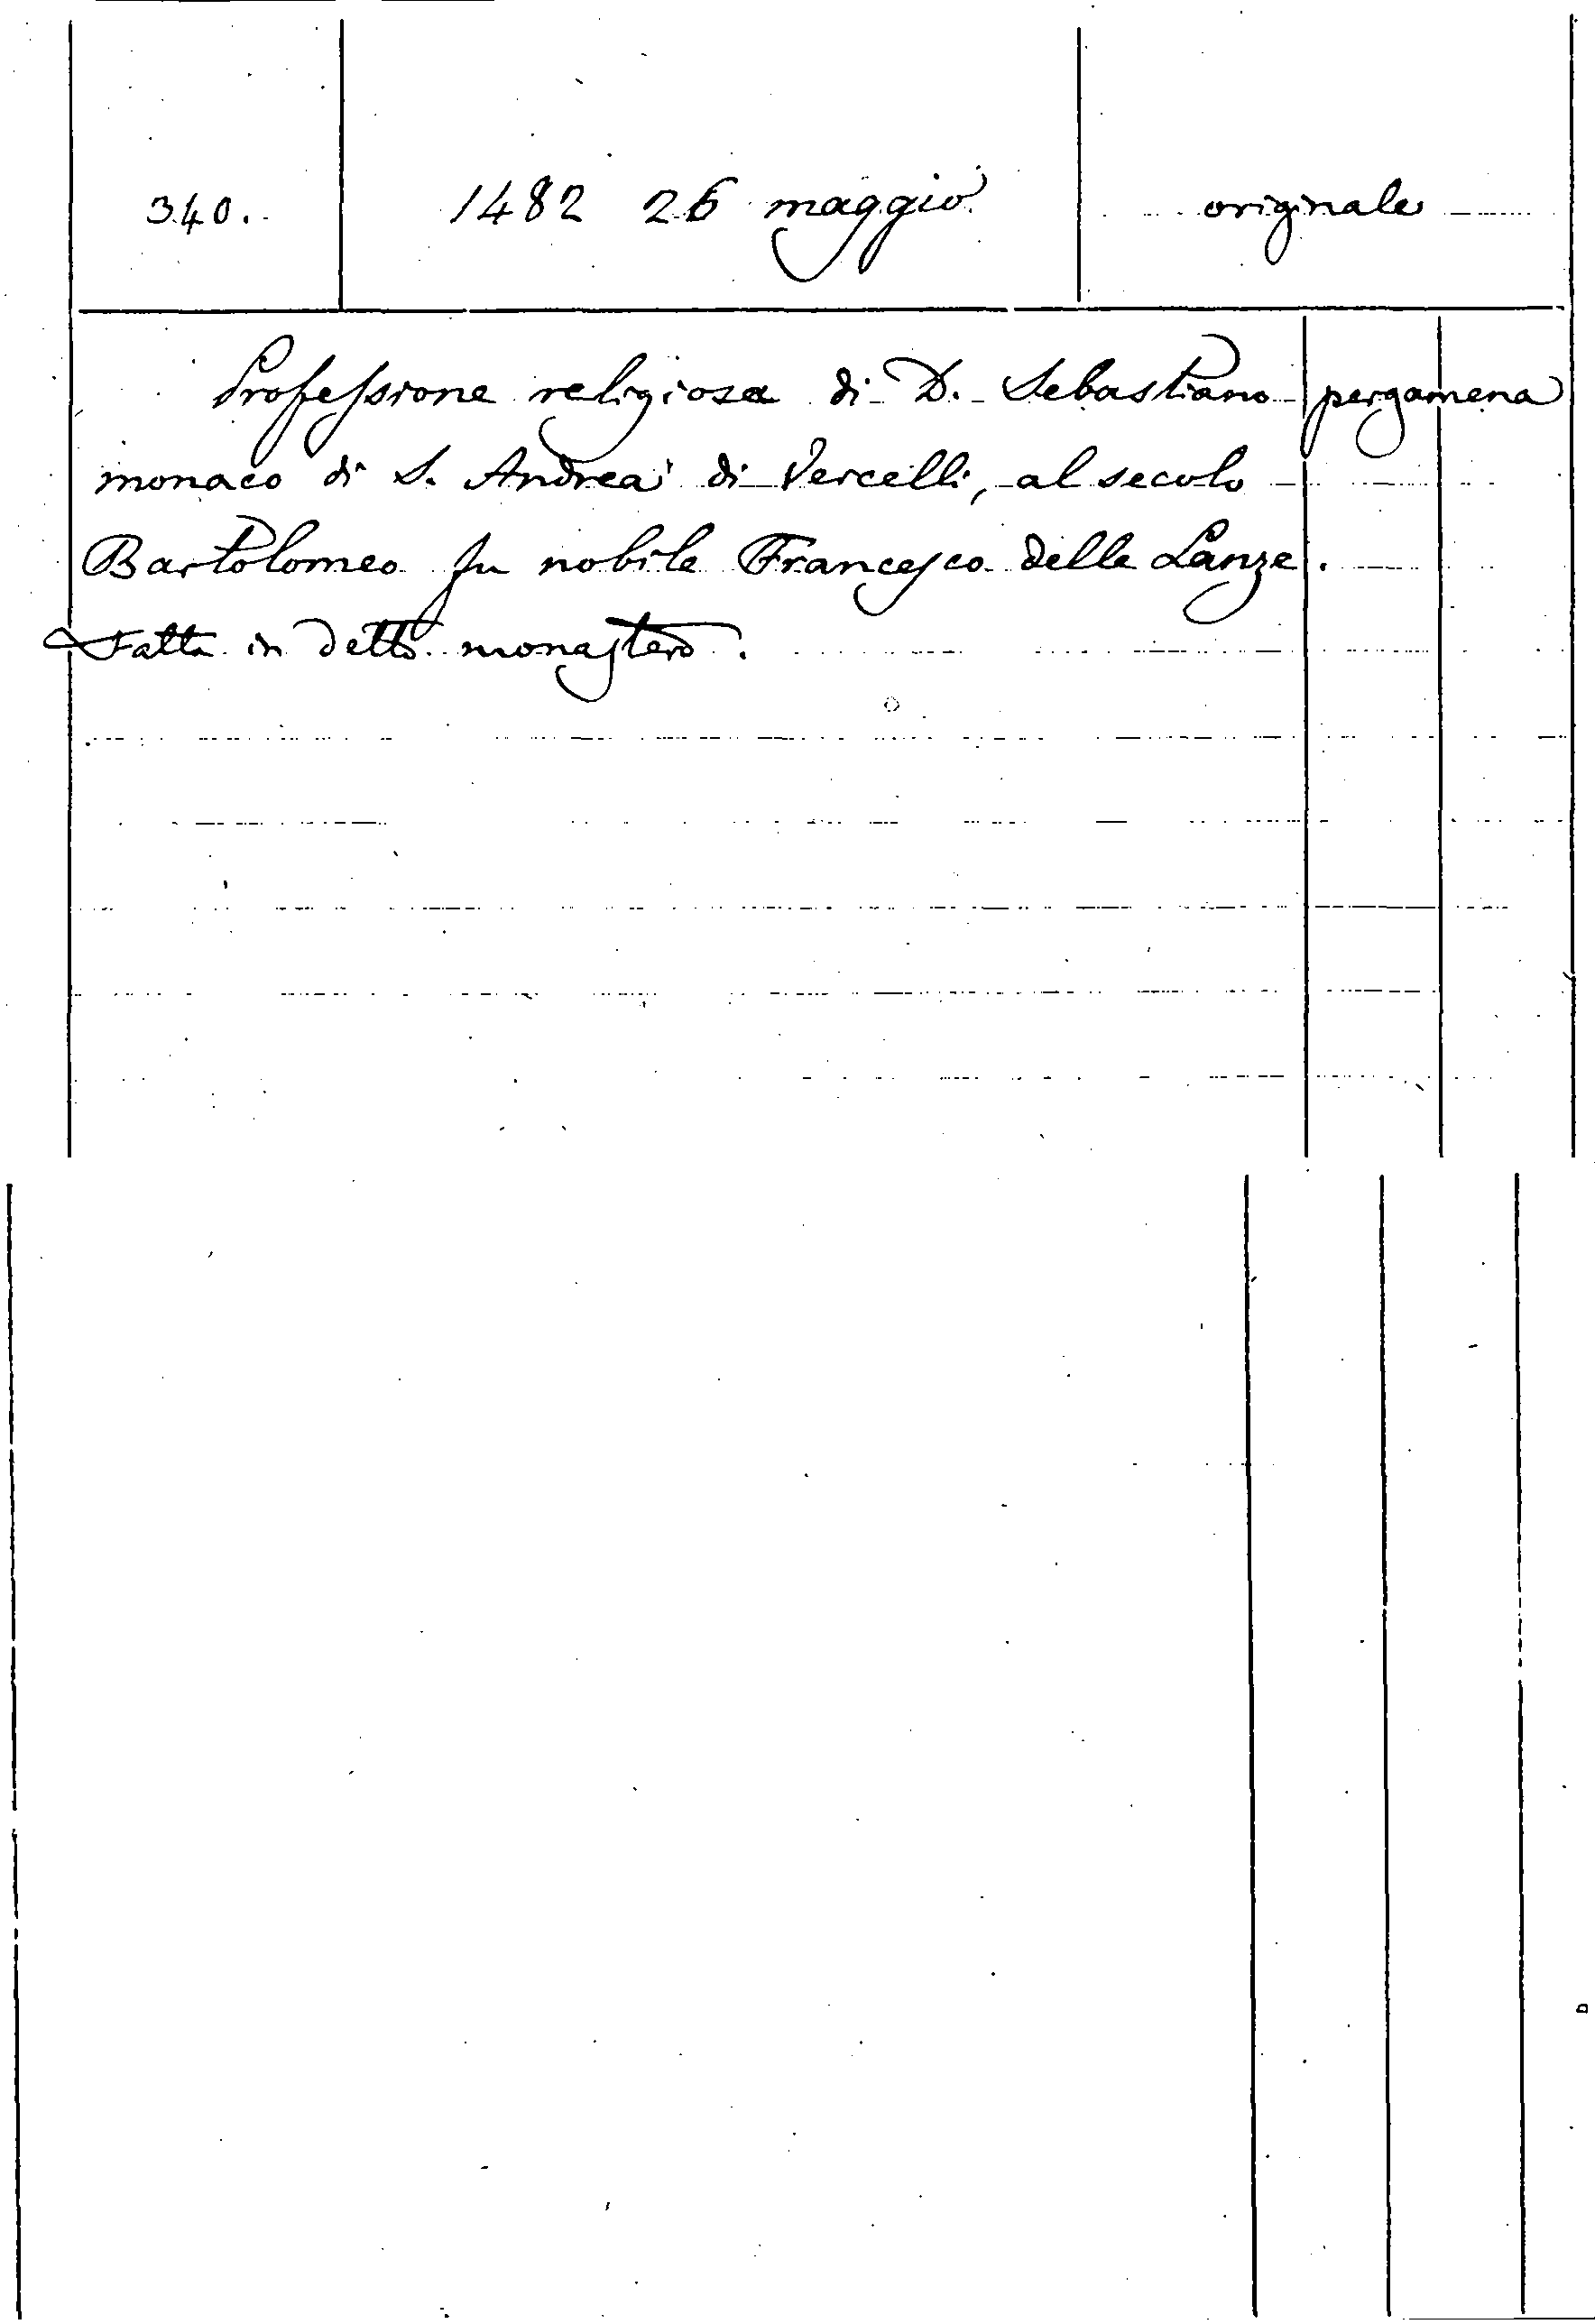 340. 1482 26 maggio originale
Professione religiosa di D. Sebastiano pergamena
monaco di S. Andrea di Vercelli, al secolo
Bartolomeo fu nobile Francesco delle Lanze.
Fatta in detto monastero.